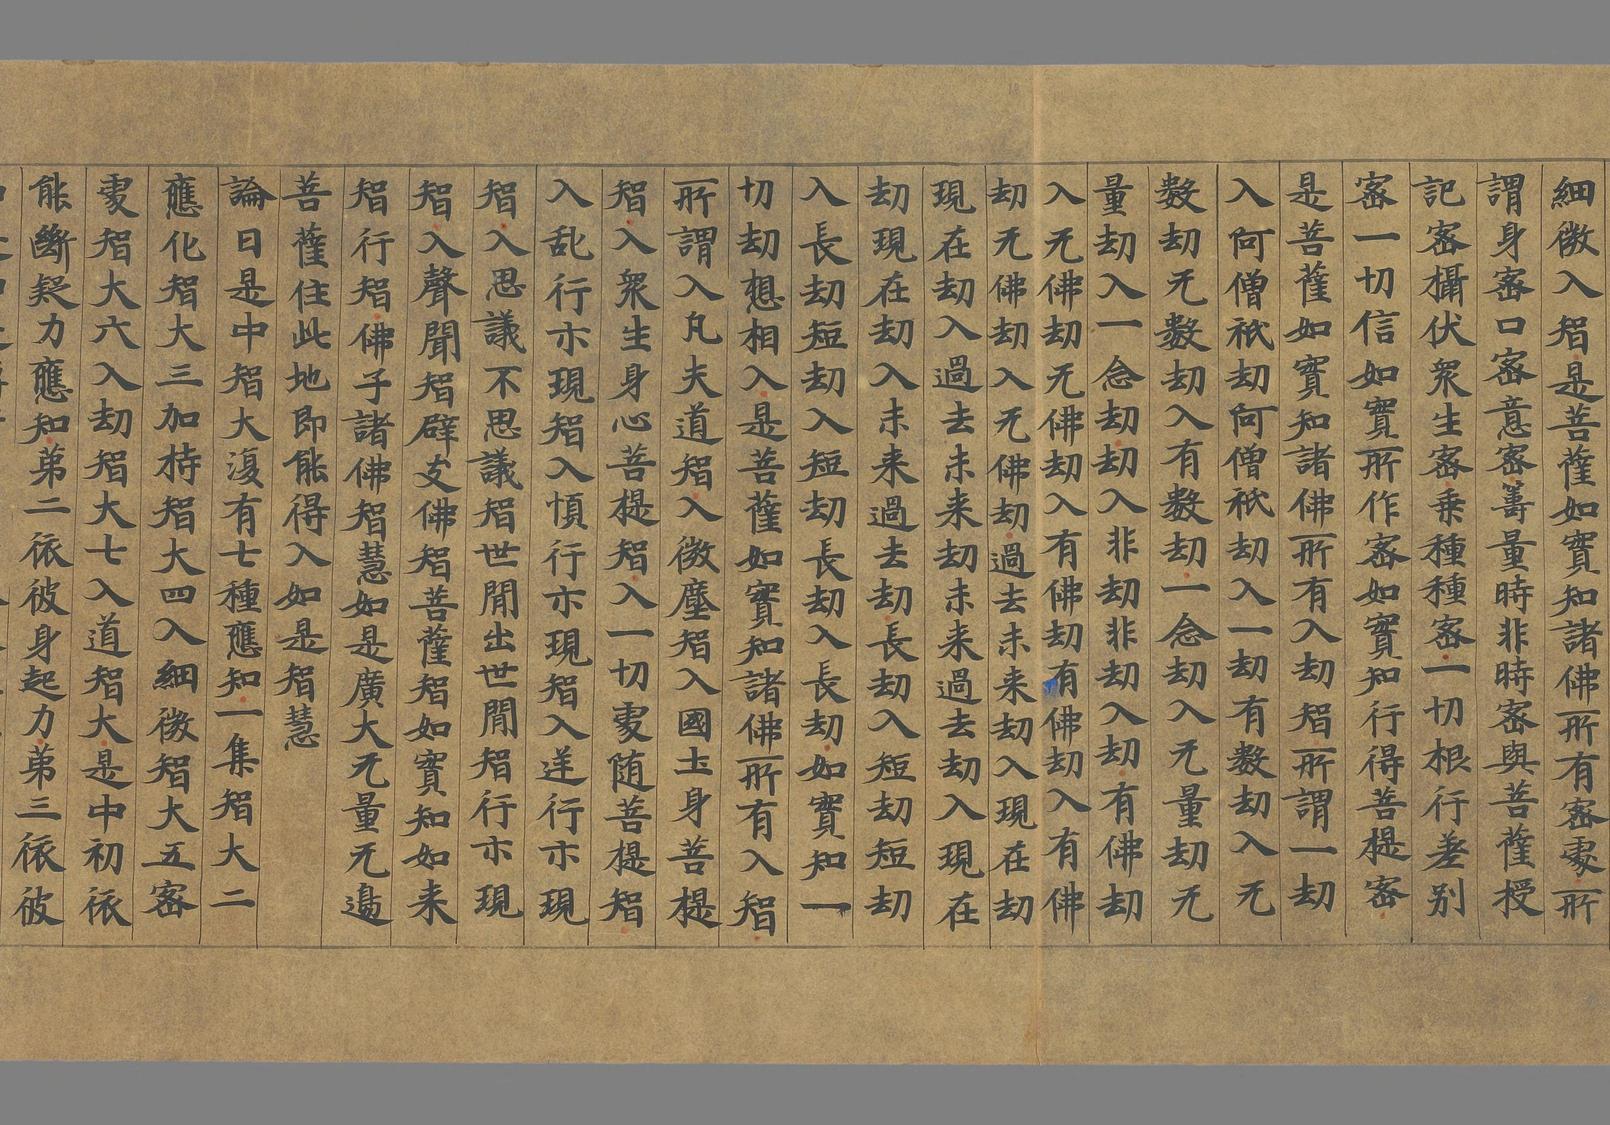 細微入智是菩薩如實知諸佛所有密處所
謂身密口密意密籌量時非時密與菩薩授
記密攝伏眾生密乗種種密一切根行差別
密一切信如實所作密如實知行得菩提密
是菩薩如實知諸佛所有入劫智所謂一劫
入阿僧祇劫阿僧祇劫入一劫有數劫入无
數劫无數劫入有數劫一念劫入无量劫无
量劫入一念劫劫入非劫非劫入劫有佛劫
入无佛劫无佛劫入有佛劫有佛劫入有佛
劫无佛劫入无佛劫過去未来劫入現在劫
現在劫入過去未来劫未来過去劫入現在
劫現在劫入未来過去劫長劫入短劫短劫
入長劫短劫入短劫長劫入長劫如實知一
切劫想相入是菩薩如實知諸佛所有入智
所謂入凡夫道智入微塵智入國土身菩提
智入衆生身心菩提智入一切處随菩提智
入乱行示現智入慎行示現智入逆行示現
智入思議不思議智世間出世間智行示現
智入聲聞智辟支佛智菩薩智如實知如来
智行智佛子諸佛智慧如是廣大无量无邊
菩薩住此地即能得入如是智慧
論曰是中智大復有七種應知一集智大二
應化智大三加持智大四入細微智大五密
處智大六入劫智大七入道智大是中初依
能斷疑力應知第二依彼身起力第三依彼